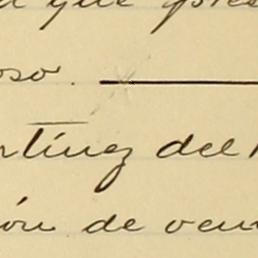 que
oso.
rtínez del
ión de ven